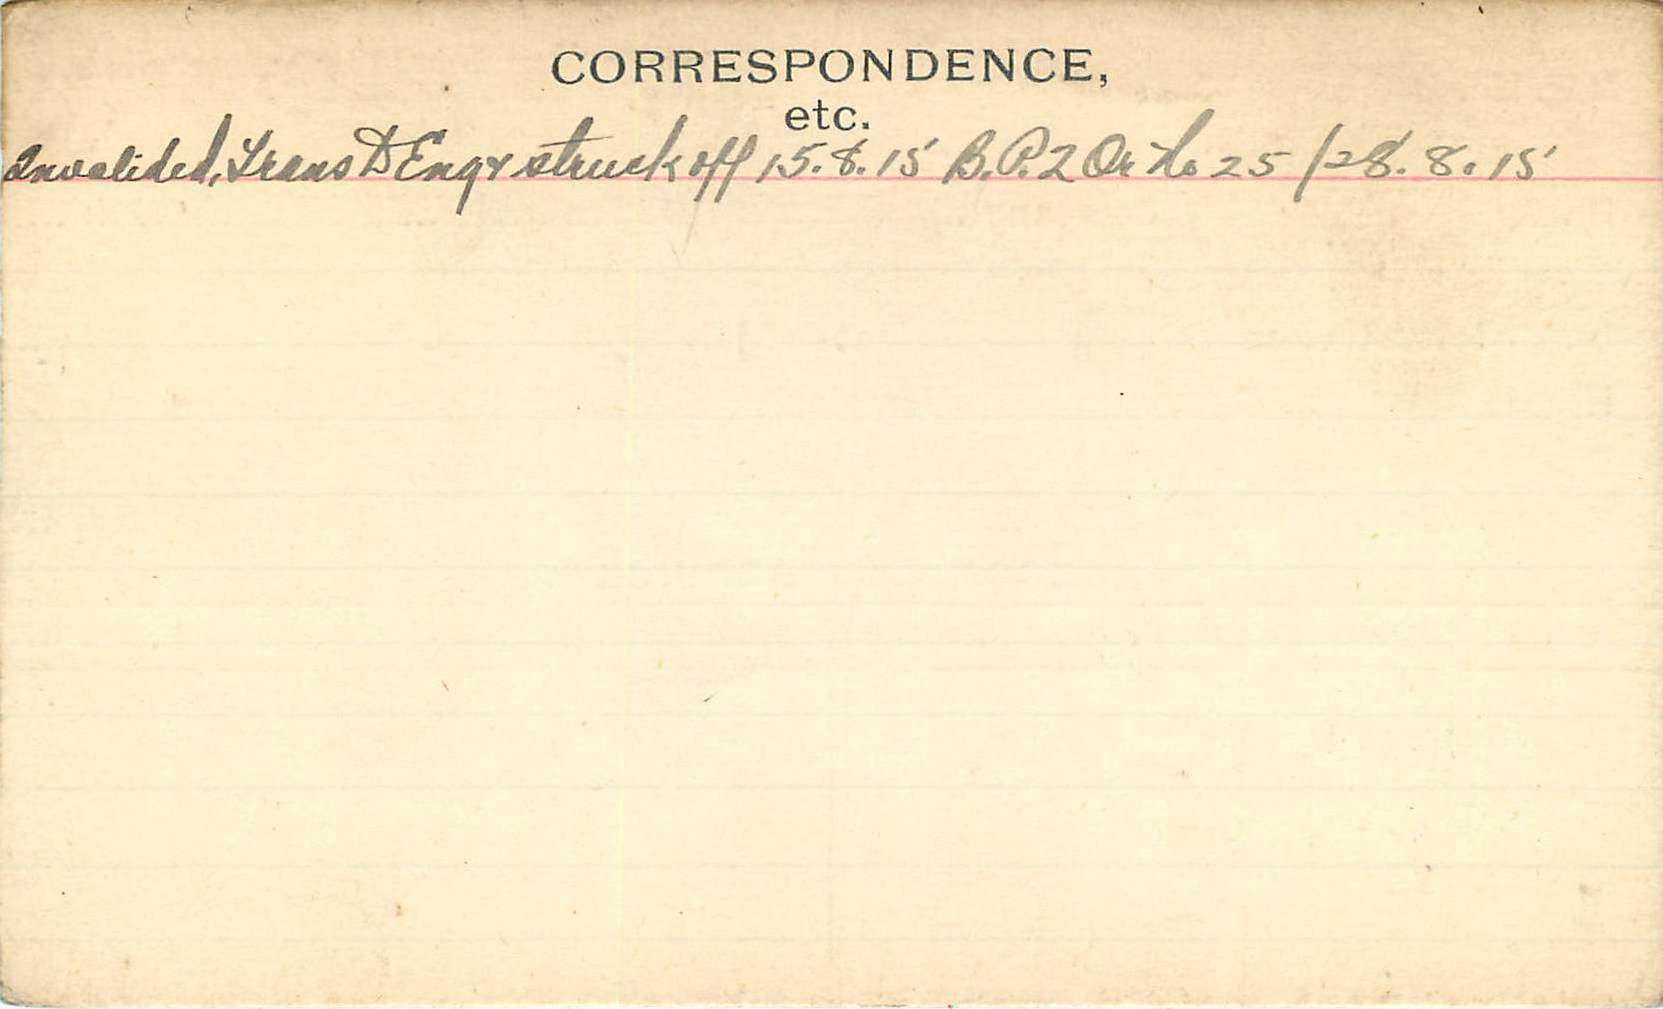 CORRESPONDENCE,
etc.
Invalided, Trans to Eng & struck off 15.8.15 B.P. 2 Or No 25 / 28.8.15